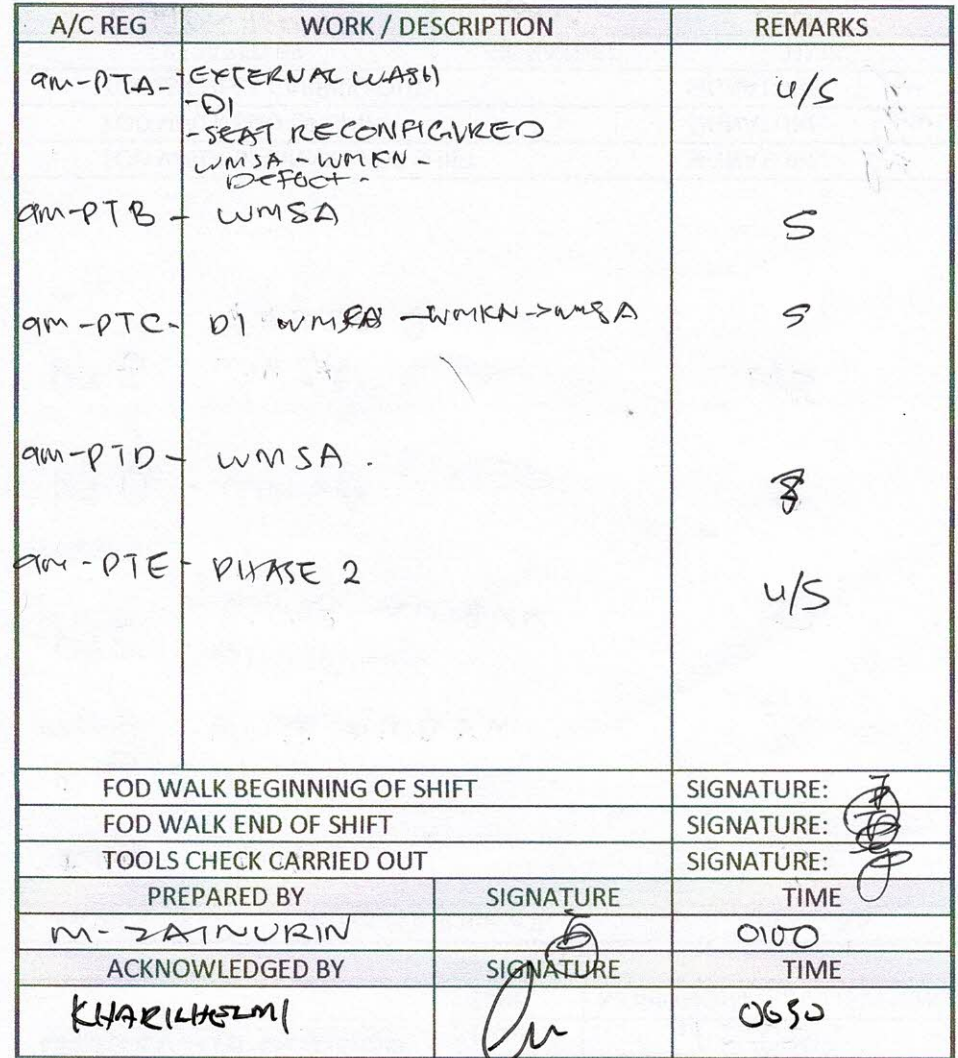 A/C REG WORK / DESCRIPTION REMARKS
9M-PTA - -EXTERNAL WASH U/S
-DI
-SEAT RECONFIGURED
WMSA - WMKN -
DEFECT -
9M-PTB - WMSA S
9M-PTC - DI WMSA - WMKN -> WMSA S
9M-PTD - WMSA . S
9M-PTE - PHASE 2 U/S
FOD WALK BEGINNING OF SHIFT SIGNATURE:
FOD WALK END OF SHIFT SIGNATURE:
TOOLS CHECK CARRIED OUT SIGNATURE:
PREPARED BY SIGNATURE TIME
M- ZAINURIN 0100
ACKNOWLEDGED BY SIGNATURE TIME
KHARILHELMI 0650